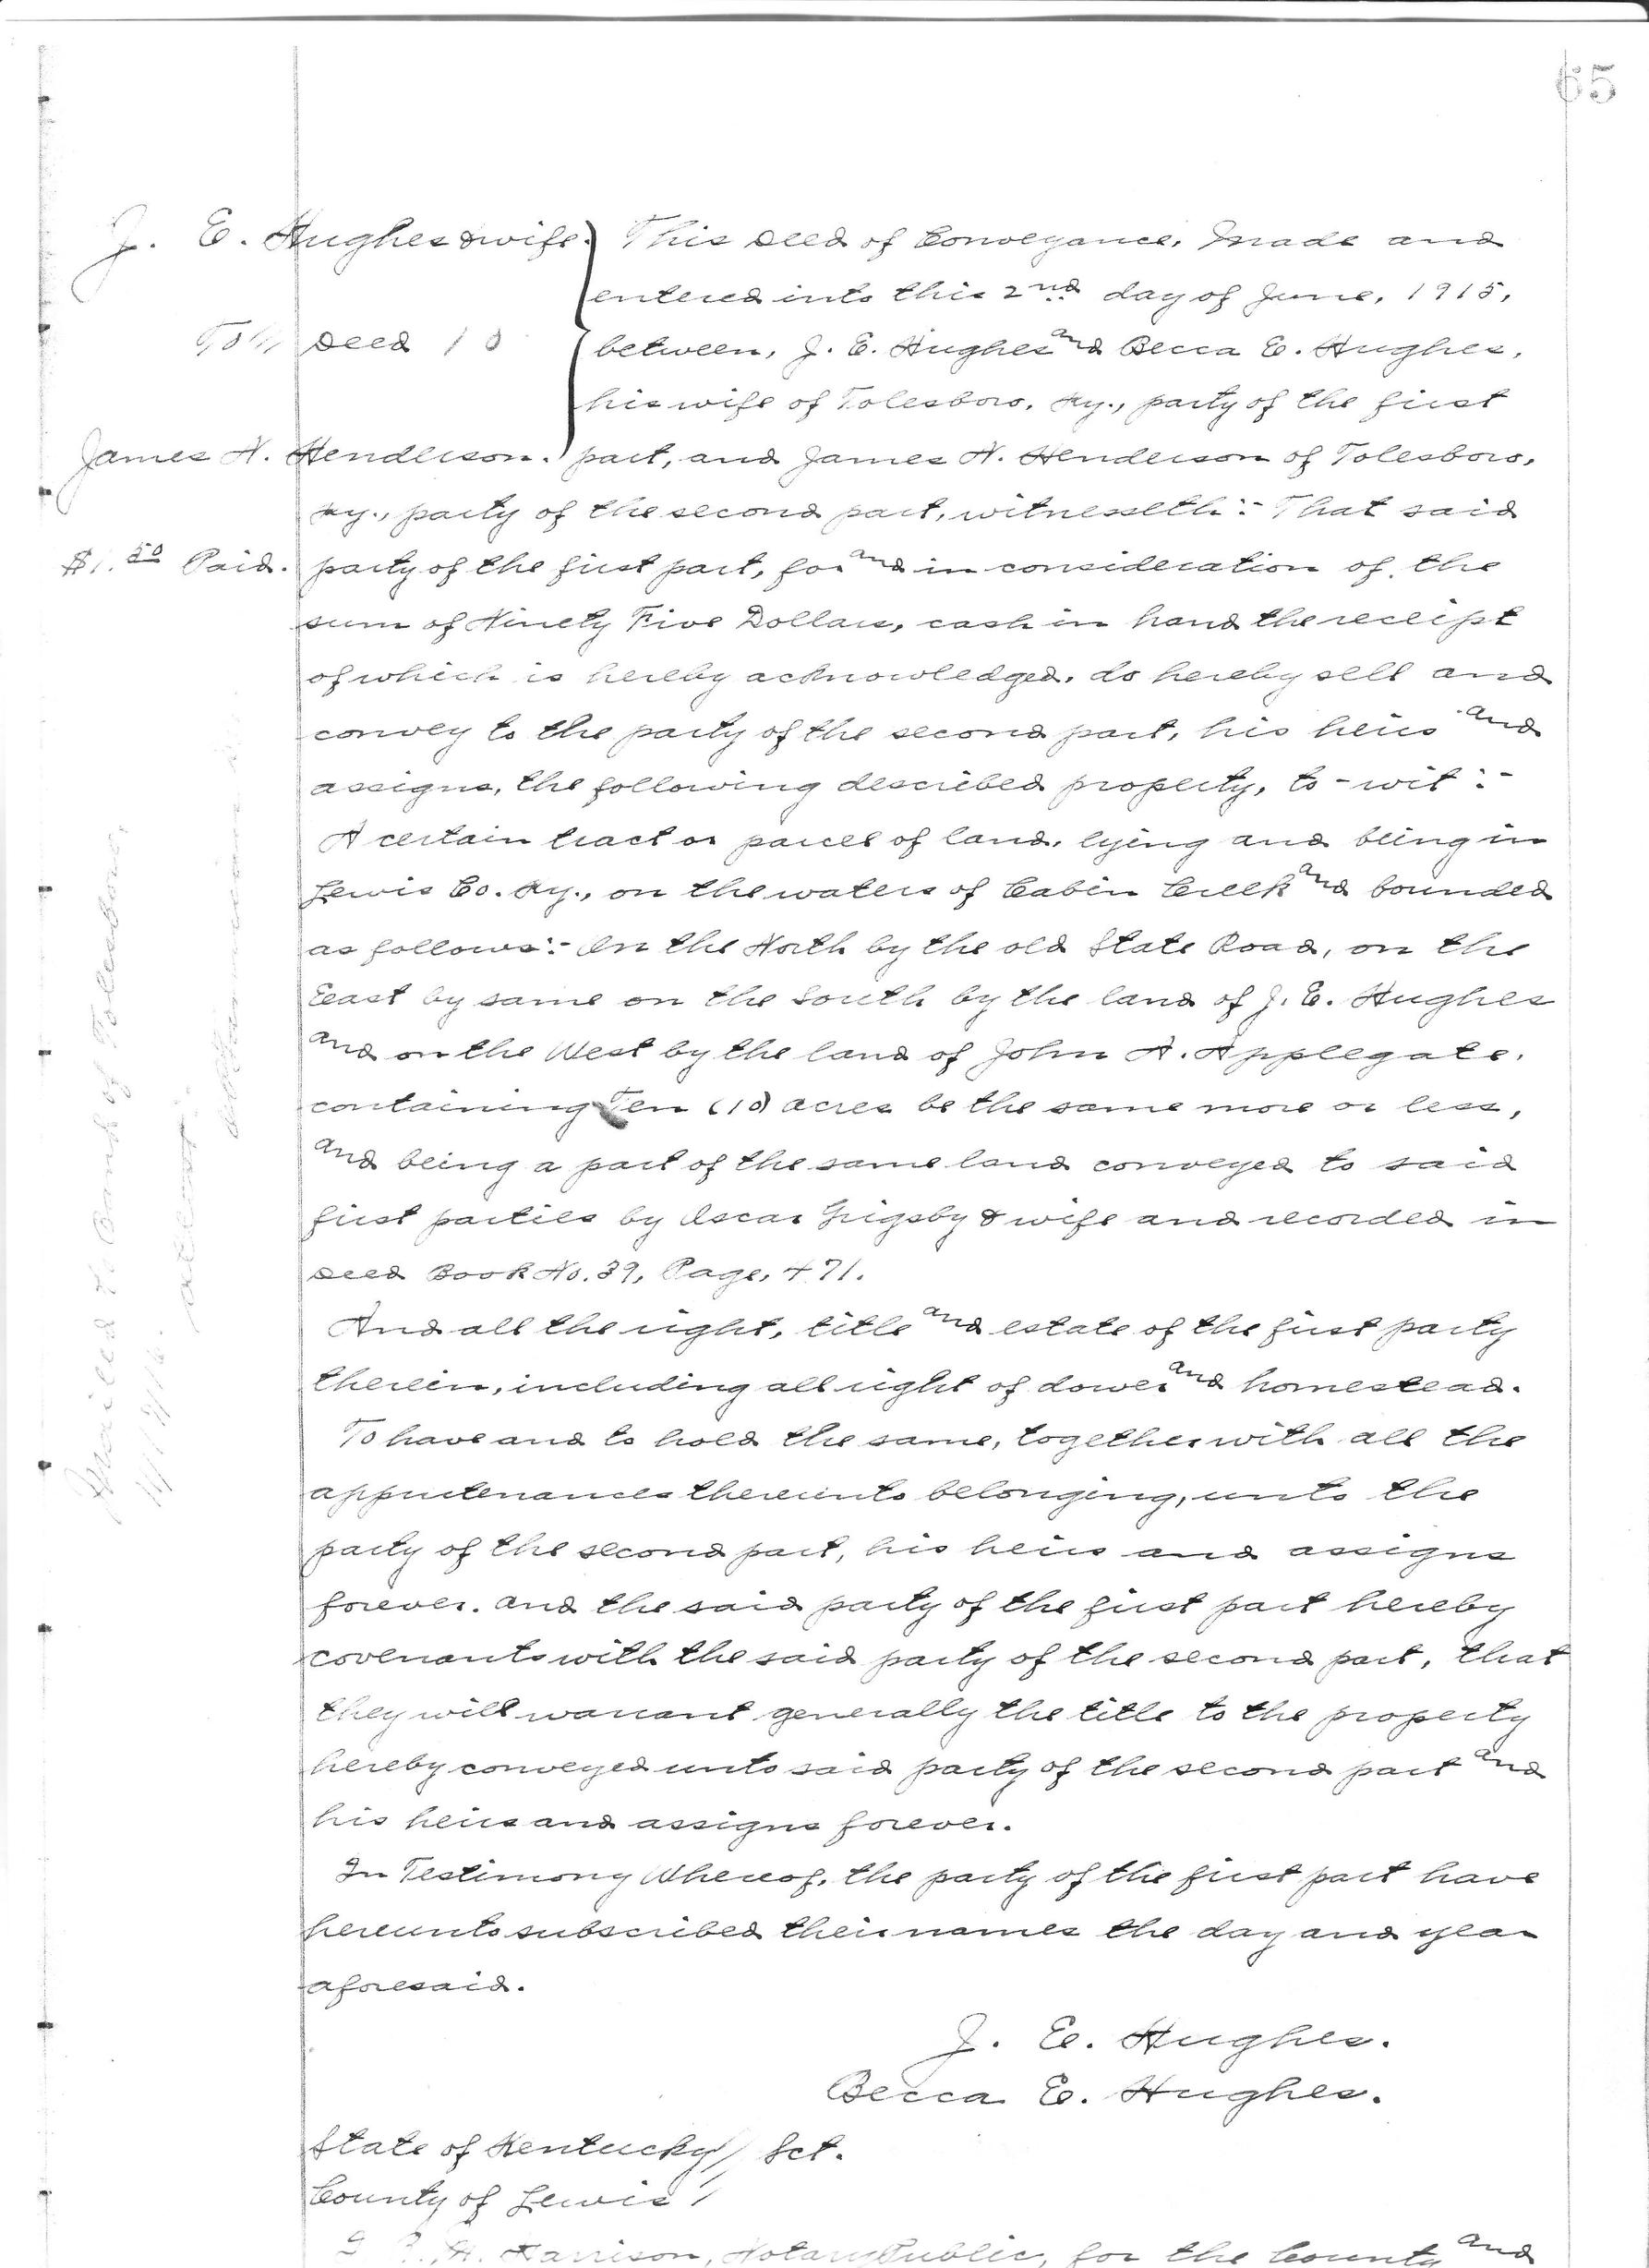 65
J. E. Hughes & wife. This Deed of Conveyance, Made and
entered into this 2nd day of June, 1915,
To // Deed 10 between, J. E. Hughes and Becca E. Hughes,
his wife of Tolesboro, Ky., party of the first
James N. Henderson. part, and James N. Henderson of Tolesboro,
Ky., party of the second part, witnesseth:- That said
$1.50 Paid. party of the first part, for and in consideration of the
sum of Ninety Five Dollars, cash in hand the receipt
of which is hereby acknowledged, do hereby sell and
convey to the party of the second part, his heirs and
assigns, the following described property, to-wit:-
A certain tract or parcel of land, lying and being in
Lewis Co. Ky., on the waters of Cabin Creek and bounded
as follows:- On the North by the old State Road, on the
East by same on the South by the land of J. E. Hughes
and on the West by the land of John A. Applegate,
containing Ten (10) acres be the same more or less,
and being a part of the same land conveyed to said
first parties by Oscar Grigsby & wife and recorded in
Deed Book No. 39, Page, 471.
And all the right, title and estate of the first party
therein, including all right of dower and homestead.
To have and to hold the same, together with all the
appurtenances thereunto belonging, unto the
party of the second part, his heirs and assigns
forever. and the said party of the first part hereby
covenants with the said party of the second part, that
they will warrant generally the title to the property
hereby conveyed unto said party of the second part and
his heirs and assigns forever.
In Testimony Whereof, the party of the first part have
hereunto subscribed their names the day and year
aforesaid.
J. E. Hughes.
Becca E. Hughes.
State of Kentucky // Sct.
County of Lewis /
H. Harrison, Notary Public, for the County and
Mailed to Bank of Tolesboro,